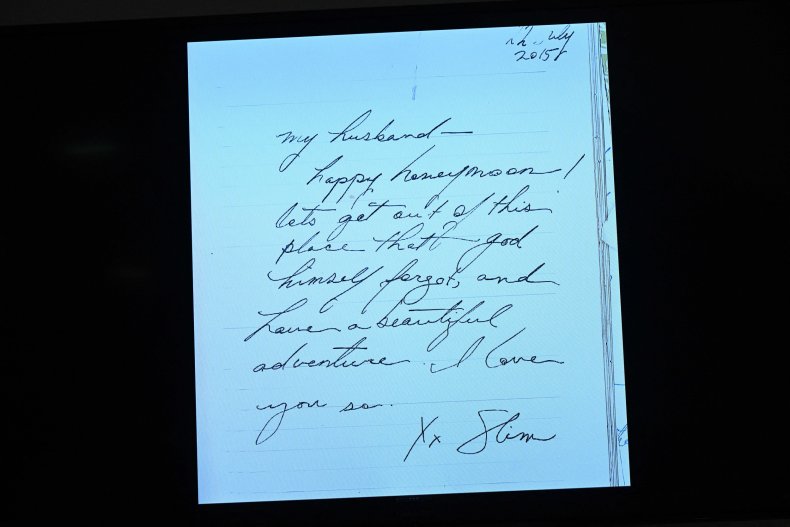 July
2015
my husband—
happy honeymoon!
lets get out of this
place that god
himself forgot, and
have a beautiful
adventure. I love
you so.
Xx Slim